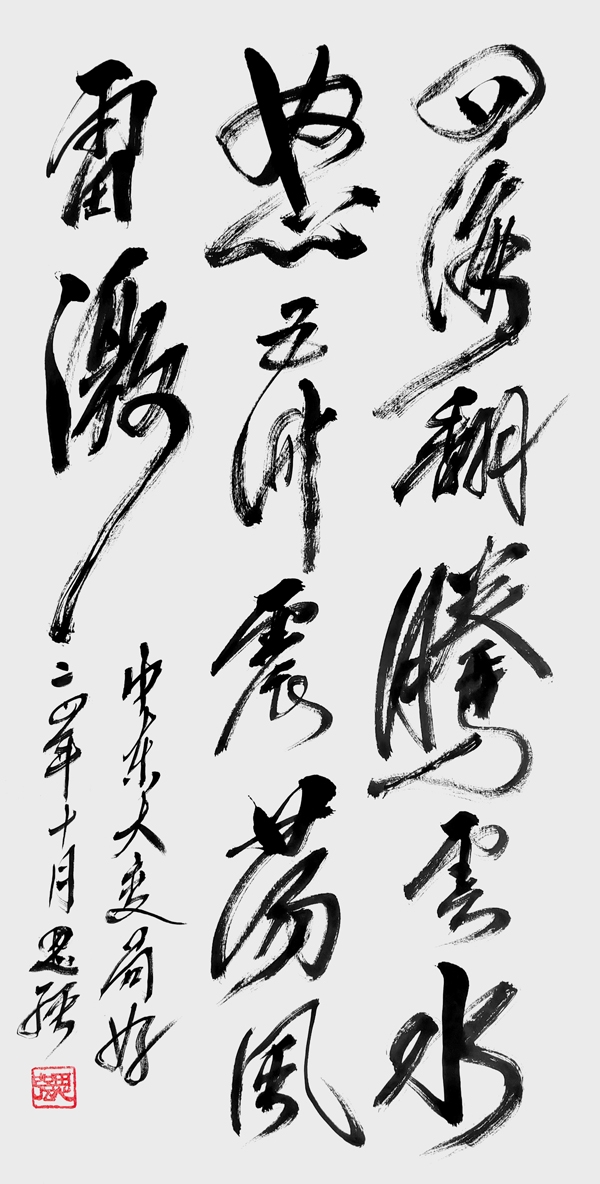 四海翻騰雲水
怒五洲震荡風
雷激
中东大变局好
二四年十月思强